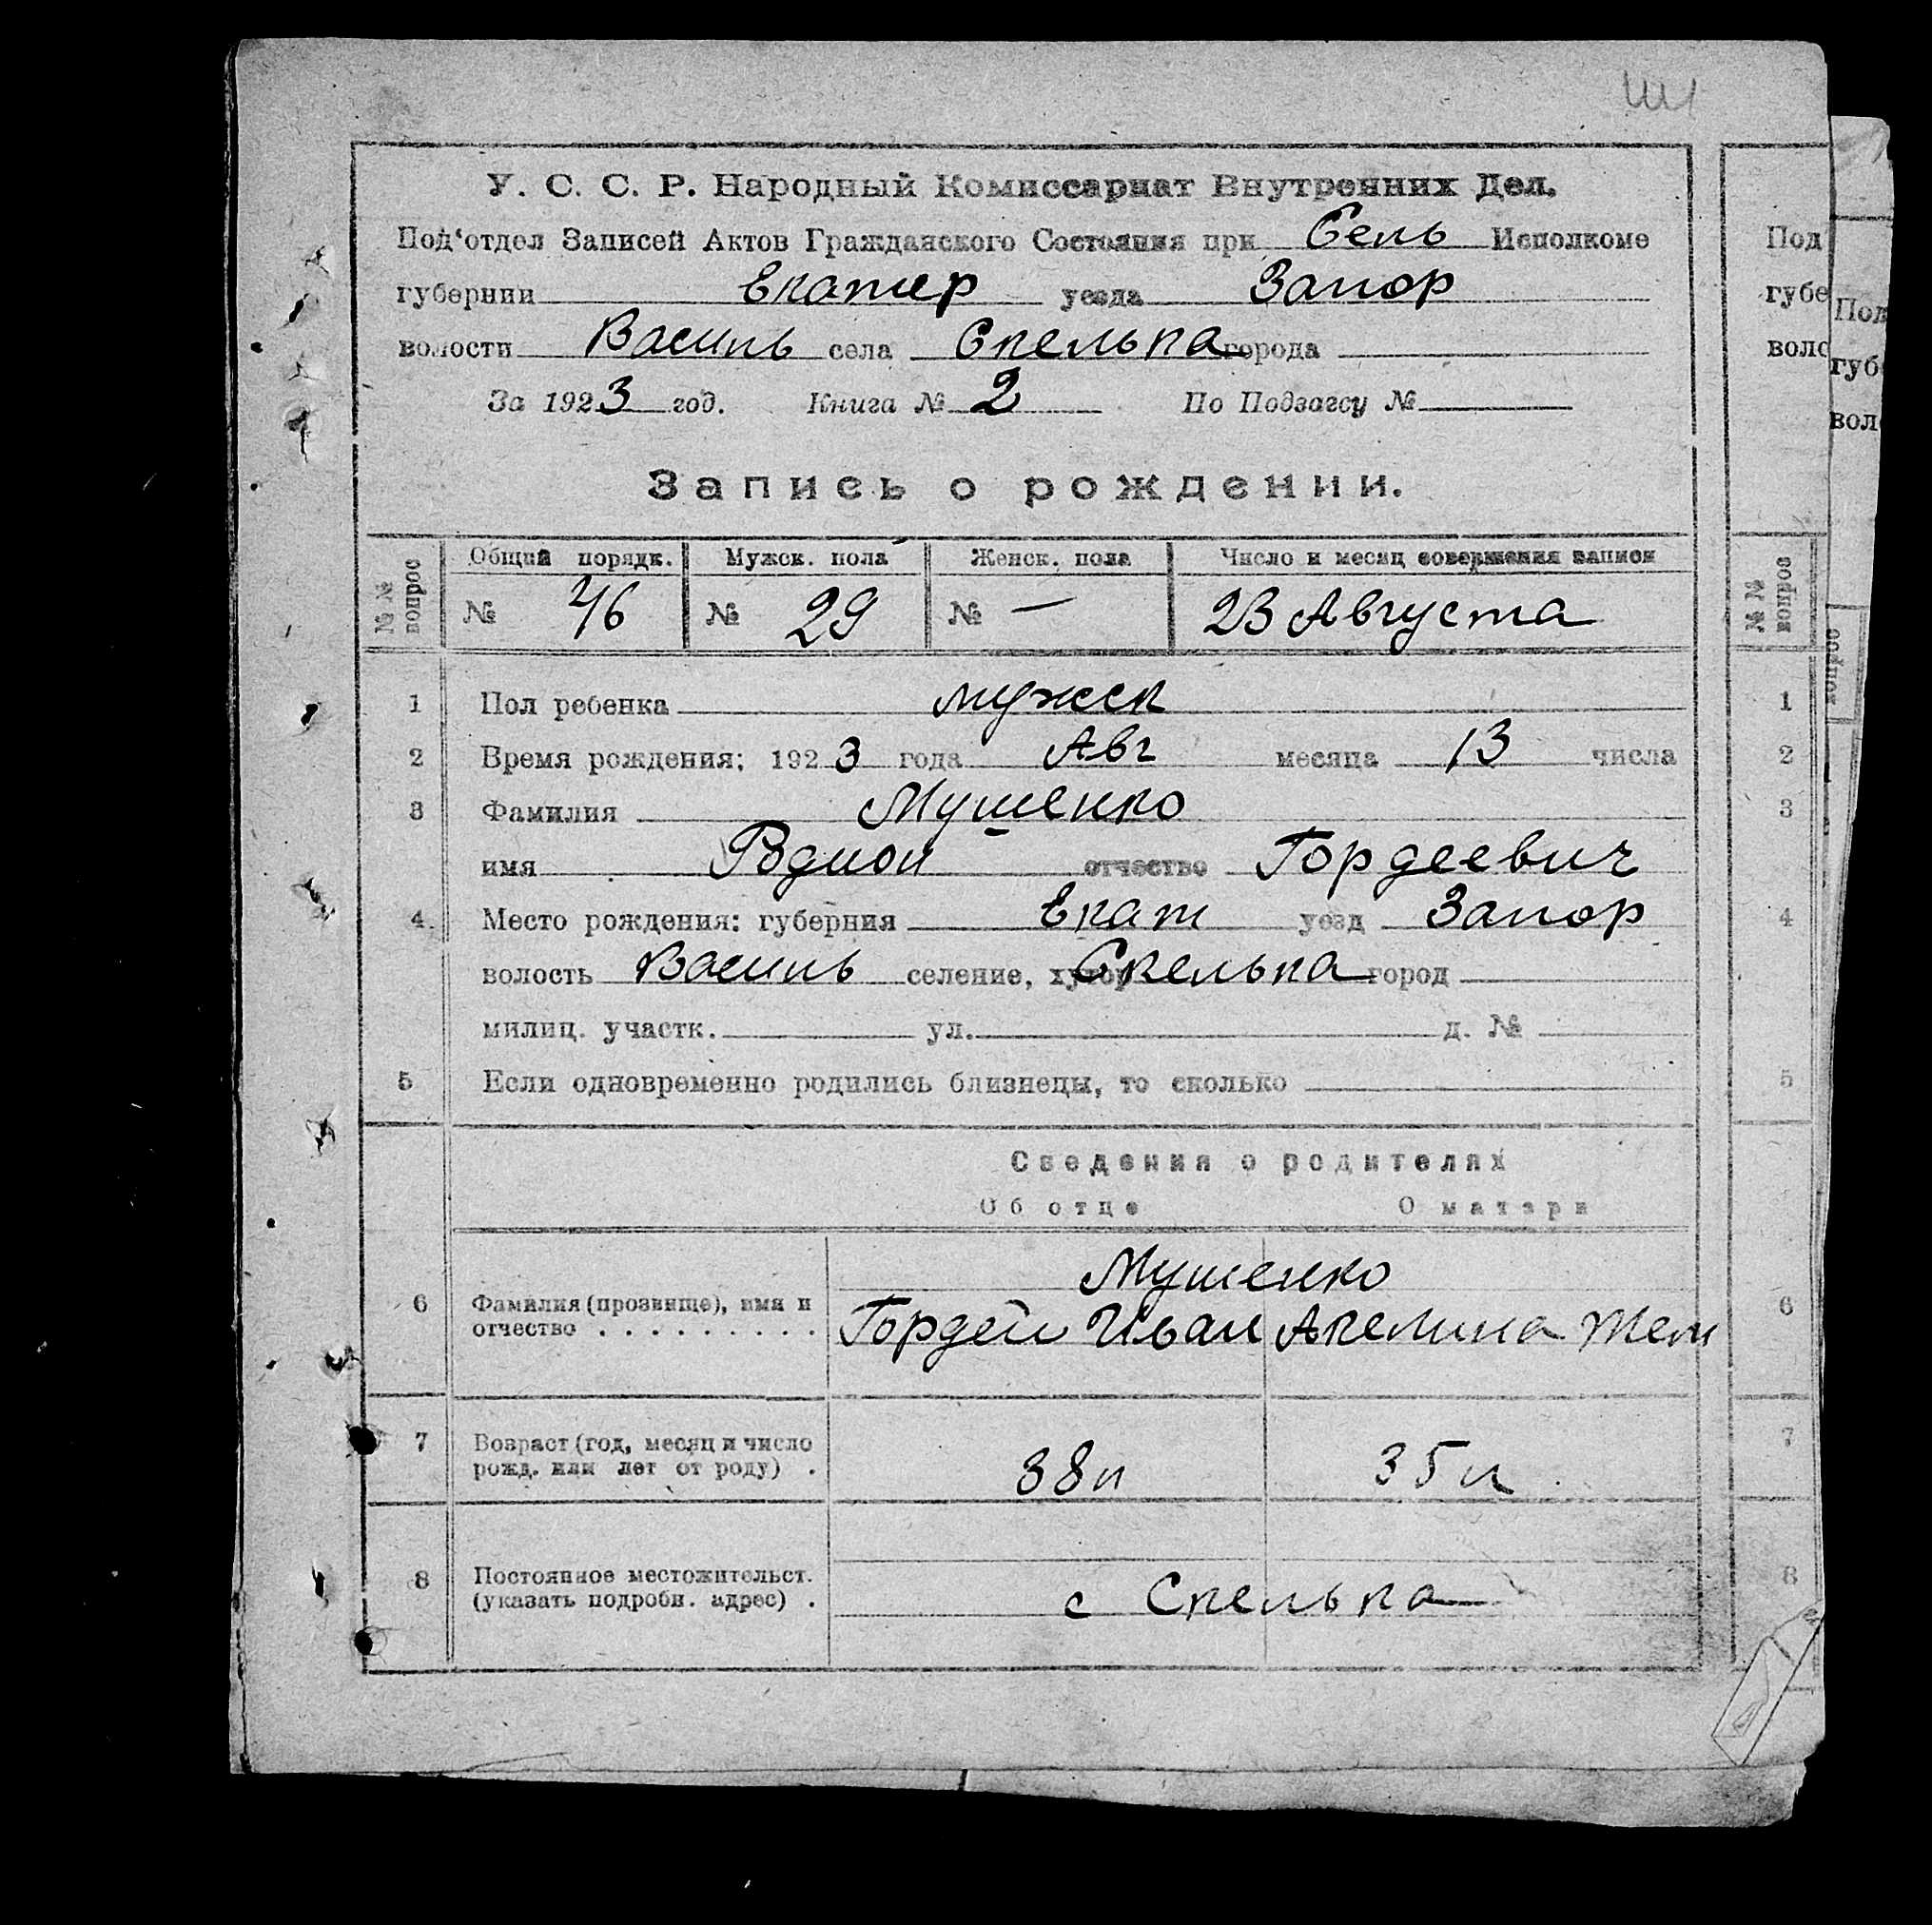 У. С. С. Р. Народный Комиссариат Внутренних Дел.
Под'отдел Записей Актов Гражданского Состояния при Сель Исполкоме
губернии Екатер уезда Запор
волости Василь села Скелька города
За 1923 год. Книга № 2 По Подзагсу №
Запись о рождении.
№ № вопрос
Общий порядк. Мужск. пола Женск. пола Число и месяц совершения записи
№ 46 № 29 № — 23 Августа
1 Пол ребенка мужск
2 Время рождения: 1923 года Авг месяца 13 числа
3 Фамилия Мушенко
имя Родион отчество Гордеевич
4 Место рождения: губерния Екат уезд Запор
волость Василь селение, хутор Скелька город
милиц. участк. ул. д. №
5 Если одновременно родились близнецы, то сколько
Сведения о родителях
Об отце О матери
Мушенко
6 Фамилия (прозвище), имя и
отчество . . . . . . . . . Гордей Иван Акелина
7 Возраст (год, месяц и число
рожд. или лет от роду) . 38 л 35 л
8 Постоянное местожительст.
(указать подробн. адрес) . с Скелька
Под
губе
воло
№ № вопрос
1
2
3
4
5
6
7
8
Под
губ
вол